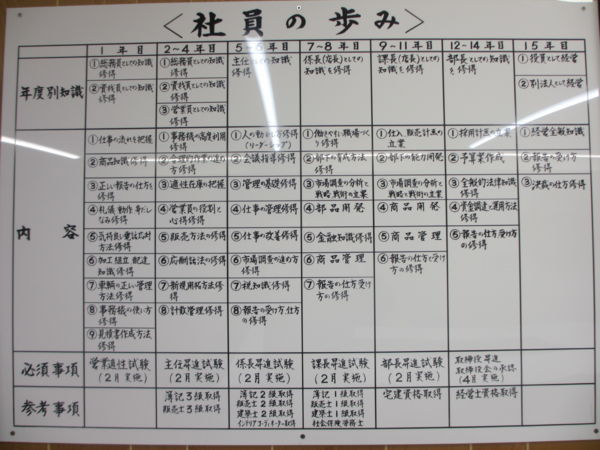 ＜社員の歩み＞
1年目
2〜4年目
5〜6年目
7〜8年目
9〜11年目
12-14年目
15年目
年度別知識
①総務員としての知識
修得
②資材員としての知識
修得
①総務員としての知識
修得
②資材員としての知識
修得
③営業員としての知識
修得
主任としての知識
修得
係長(店長)としての
知識を修得
課長(店長)としての
知識を修得
部長としての知識
を修得
①投資として経営
②別法人として経営
内容
①仕事の流れを把握
②商品知識修得
③正しい報告の仕方を
修得
④礼儀動作身だし
なみ修得
⑤気持良い電話応対
方法修得
⑥加工組立配達
知識修得
⑦車輌の正しい管理
方法修得
⑧事務機の使い方
修得
⑨見積書作成方法
修得
①事務機の高度利用
修得
②合理的作業の進め
方修得
③適性在庫の把握
④営業員の役割と
心得修得
⑤販売方法の修得
⑥応酬話法の修得
⑦新規開拓方法修得
⑧計数管理修得
①人の動かし方修得
(リーダーシップ)
②会議指導修得
③管理の基礎修得
④仕事の管理修得
⑤仕事の改善修得
⑥市場調査の進め方
修得
⑦税知識修得
⑧報告の受け方、仕方
の修得
①働きやすい職場づく
り修得
②部下の育成方法
修得
③市場調査の分析と
戦略・戦術の立案
④部品開発
⑤金融知識修得
⑥商品管理
⑦報告の仕方受け
方の修得
①仕入、販売計画の
立案
②部下の能力開発
③市場調査の分析と
戦略・戦術の立案
④商品開発
⑤商品管理
⑥報告の仕方受け
方の修得
①採用計画の立案
②予算案作成
③全般的法律知識
修得
④資金調達と運用方法
修得
⑤報告の仕方受け方
の修得
①経営全般知識
②報告の受け方
修得
③決裁の仕方修得
必須事項
営業適性試験
(2月実施)
主任昇進試験
(2月実施)
係長昇進試験
(2月実施)
課長昇進試験
(2月実施)
部長昇進試験
(2月実施)
取締役昇進
取締役会の承認
(4月実施)
参考事項
簿記3級取得
販売士3級取得
簿記2級取得
販売士2級取得
建築士2級取得
インテリアコーディネーター取得
簿記1級取得
販売士1級取得
建築士1級取得
社会保険労務士
宅建資格取得
経営士資格取得